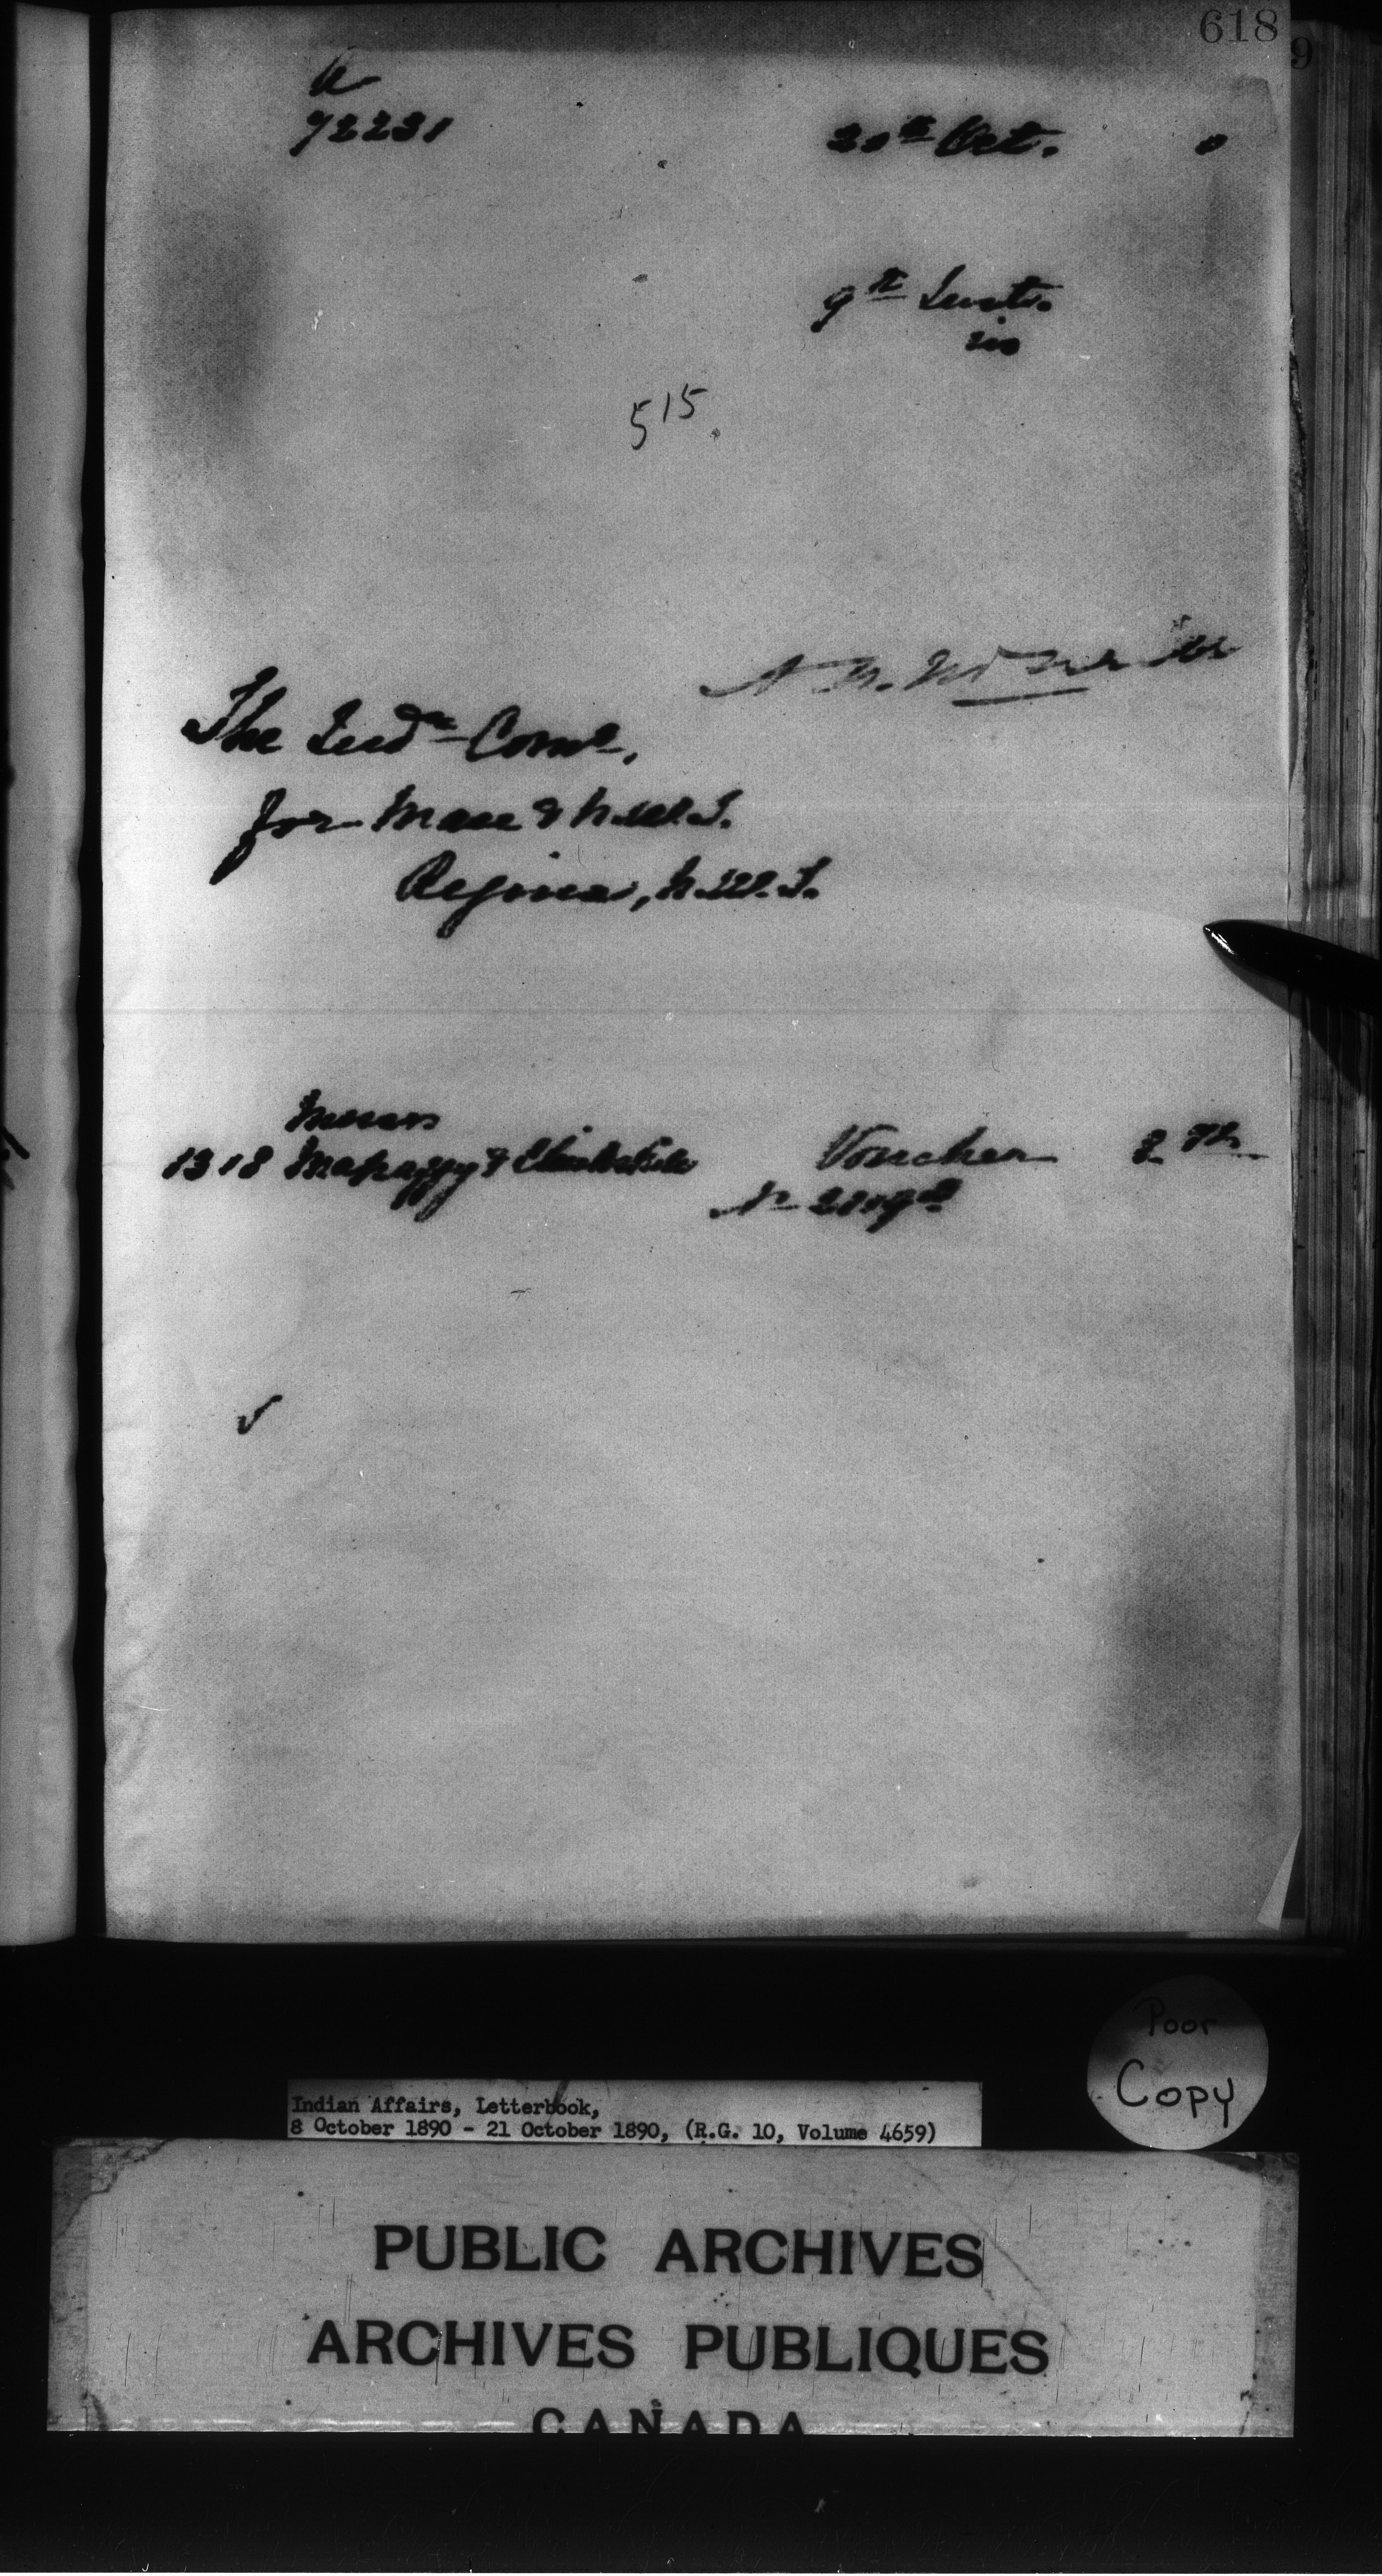 618
9
72231
20th Oct. 0
9th Inst.
515
The Indn Comr,
for Man & N.W.T.
Regina, N.W.T.
Messrs
1318 Mahaffy & Clinkskill Voucher 2
No
Poor
Copy
Indian Affairs, Letterbook,
8 October 1890 - 21 October 1890, (R.G. 10, Volume 4659)
PUBLIC ARCHIVES
ARCHIVES PUBLIQUES
CANADA